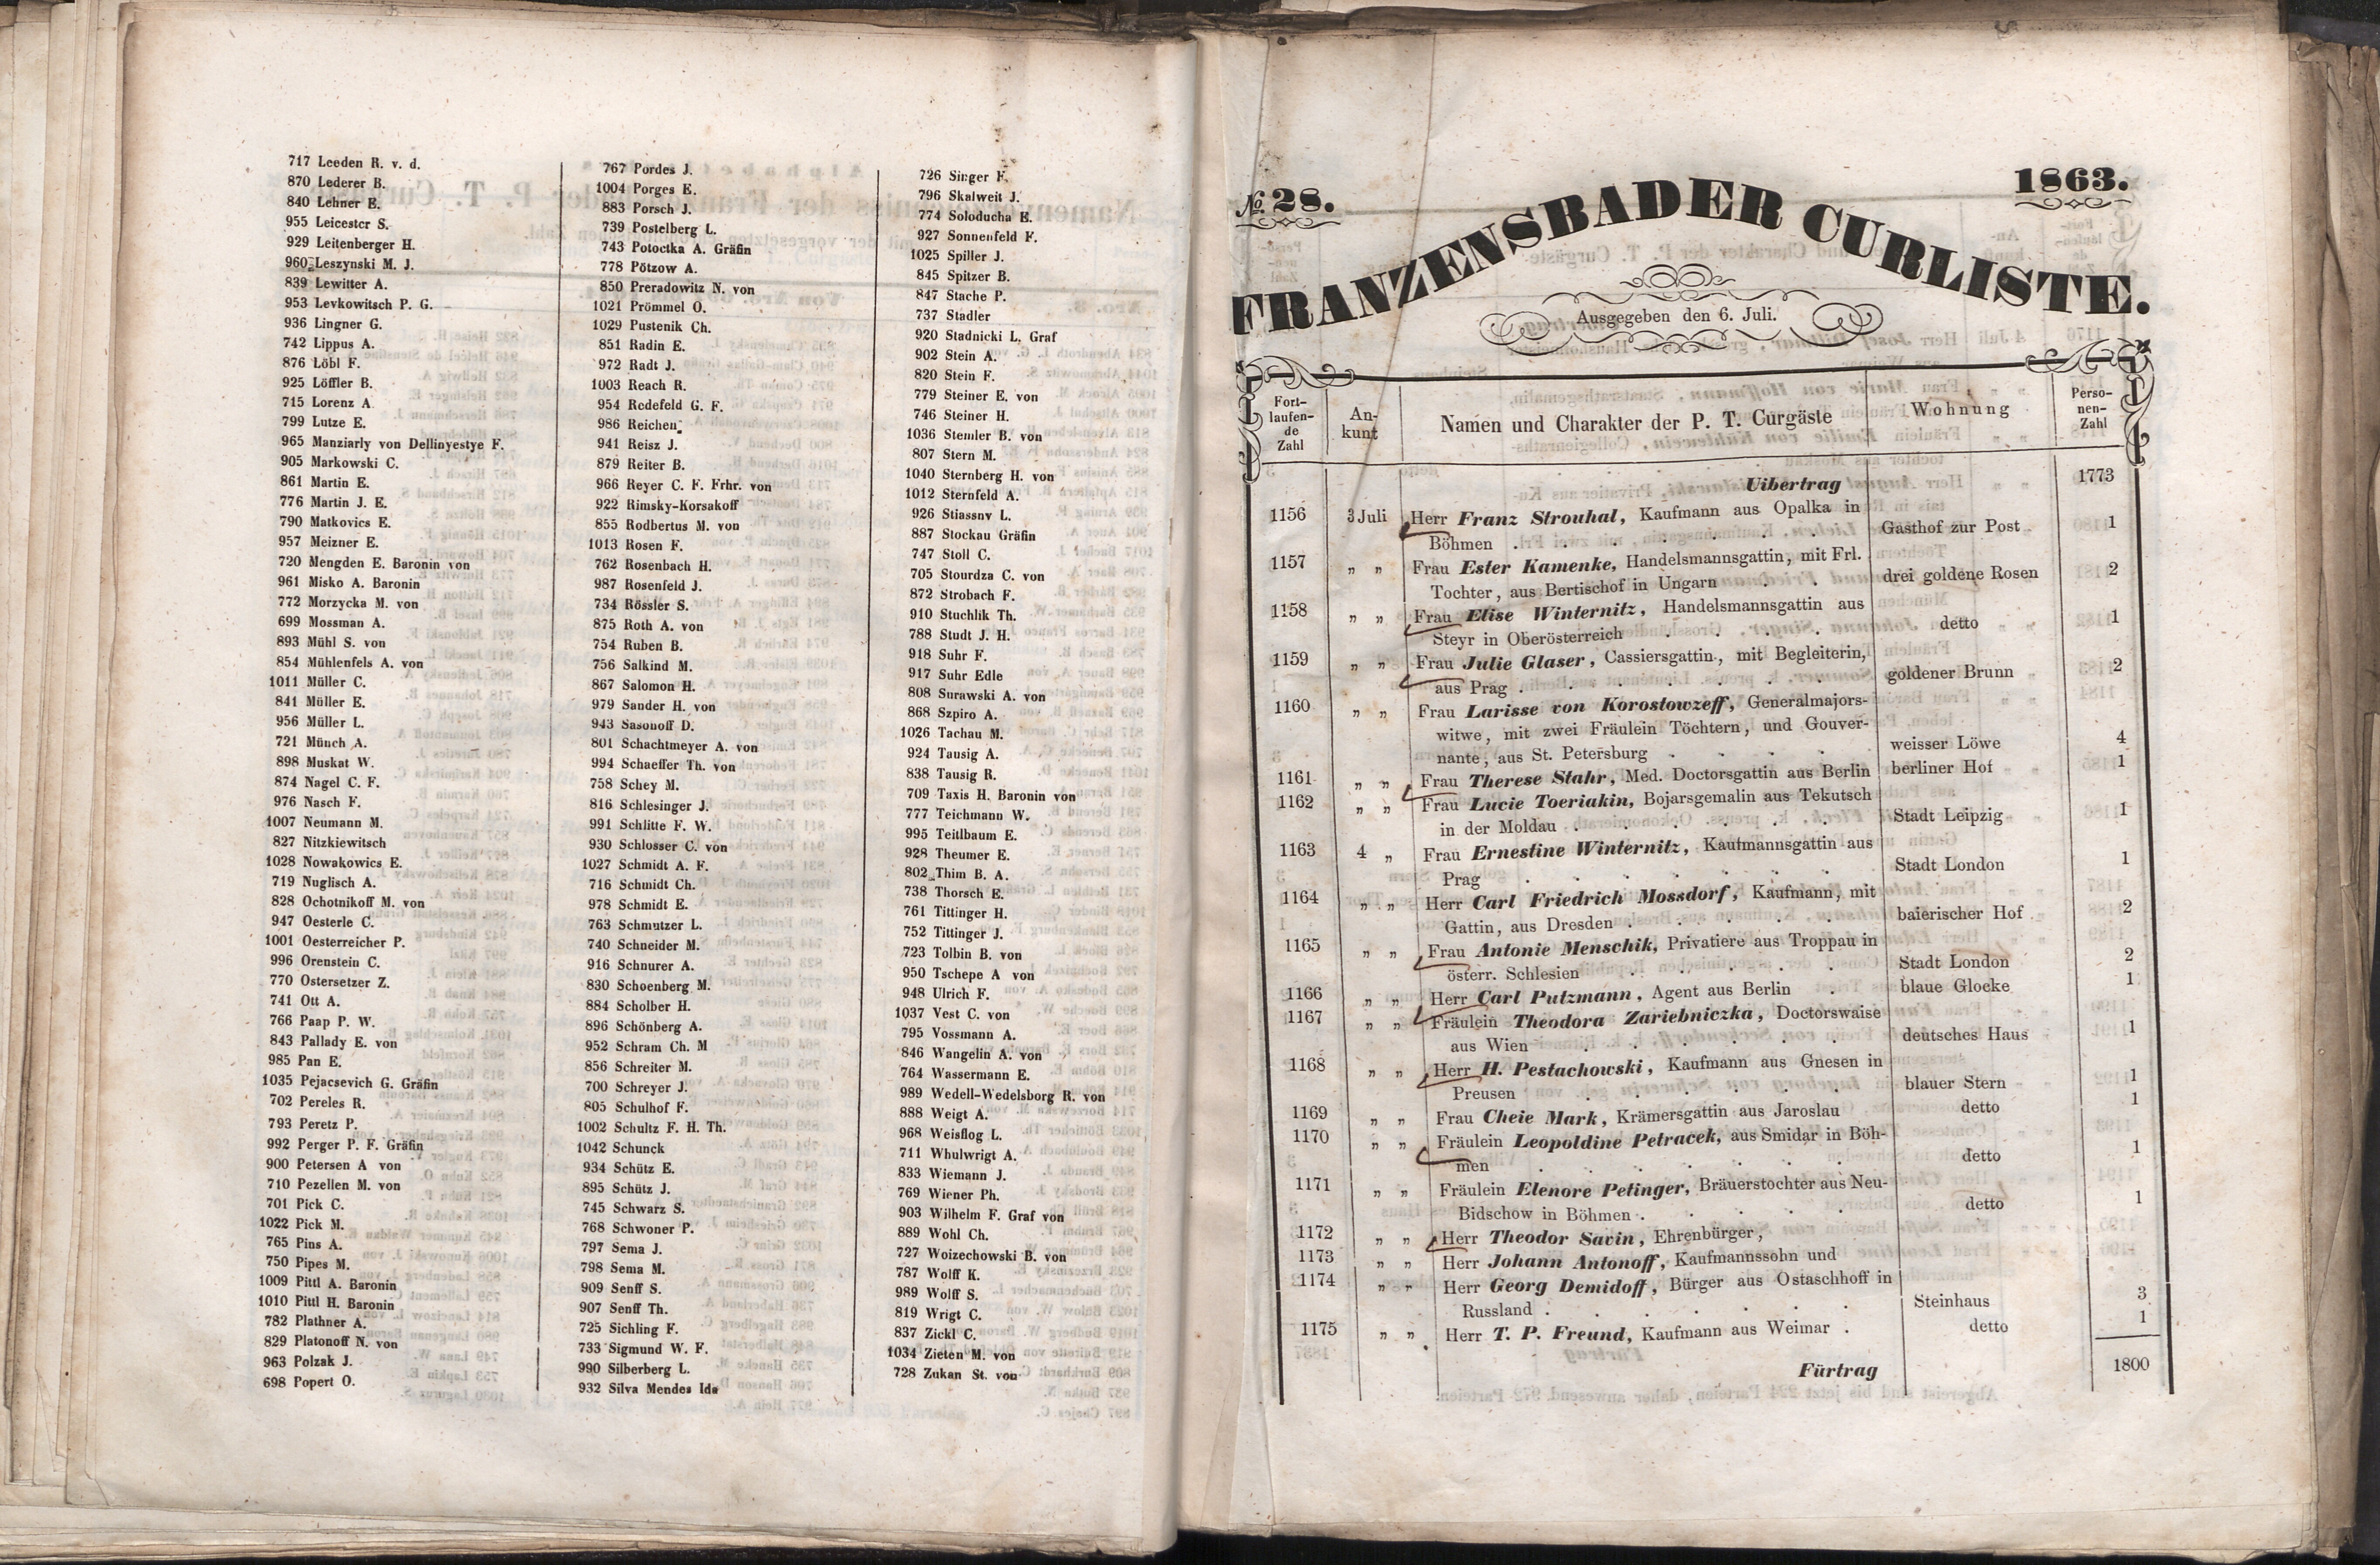 717 Leeden R. v. d.
870 Lederer B.
840 Lehner E.
955 Leicester S.
929 Leitenberger H.
960 Leszynski M. J.
839 Lewitter A.
953 Levkowitsch P. G.
936 Lingner G.
742 Lippus A.
876 Löbl F.
925 Löffler B.
715 Lorenz A
799 Lutze E.
965 Manziarly von Dellinyestye F.
905 Markowski C.
861 Martin E.
776 Martin J. E.
790 Matkovics E.
957 Meizner E.
720 Mengden E. Baronin von
961 Misko A. Baronin
772 Morzycka M. von
699 Mossman A.
893 Mühl S. von
854 Mühlenfels A. von
1011 Müller C.
841 Müller E.
956 Müller L.
721 Münch A.
898 Muskat W.
874 Nagel C. F.
976 Nasch F.
1007 Neumann M.
827 Nitzkiewitsch
1028 Nowakowics E.
719 Nuglisch A.
828 Ochotnikoff M. von
947 Oesterle C.
1001 Oesterreicher P.
996 Orenstein C.
770 Ostersetzer Z.
741 Ott A.
766 Paap P. W.
843 Pallady E. von
985 Pan E.
1035 Pejacsevich G. Gräfin
702 Pereles R.
793 Peretz P.
992 Perger P. F. Gräfin
900 Petersen A von
710 Pezellen M. von
701 Pick C.
1022 Pick M.
765 Pins A.
750 Pipes M.
1009 Pittl A. Baronin
1010 Pittl H. Baronin
782 Plathner A.
829 Platonoff N. von
963 Polzak J.
698 Popert O.
767 Pordes J.
1004 Porges E.
883 Porsch J.
739 Postelberg L.
743 Potoctka A. Gräfin
778 Pötzow A.
850 Preradowitz N. von
1021 Prömmel O.
1029 Pustenik Ch.
851 Radin E.
972 Radt J.
1003 Reach R.
954 Redefeld G. F.
986 Reichen
941 Reisz J.
879 Reiter B.
966 Reyer C. F. Frhr. von
922 Rimsky-Korsakoff
855 Rodbertus M. von
1013 Rosen F.
762 Rosenbach H.
987 Rosenfeld J.
734 Rössler S.
875 Roth A. von
754 Ruben B.
756 Salkind M.
867 Salomon H.
979 Sander H. von
943 Sasonoff D.
801 Schachtmeyer A. von
994 Schaeffer Th. von
758 Schey M.
816 Schlesinger J.
991 Schlitte F. W.
930 Schlosser C. von
1027 Schmidt A. F.
716 Schmidt Ch.
978 Schmidt E.
763 Schmutzer L.
740 Schneider M.
916 Schnurer A.
830 Schoenberg M.
884 Scholber H.
896 Schönberg A.
952 Schram Ch. M
856 Schreiter M.
700 Schreyer J.
805 Schulhof F.
1002 Schultz F. H. Th.
1042 Schunck
934 Schütz E.
895 Schütz J.
745 Schwarz S.
768 Schwoner P.
797 Sema J.
798 Sema M.
909 Senff S.
907 Senff Th.
725 Sichling F.
733 Sigmund W. F.
990 Silberberg L.
932 Silva Mendes Ida
726 Singer F.
796 Skalweit J.
774 Soloducha E.
927 Sonnenfeld F.
1025 Spiller J.
845 Spitzer B.
847 Stache P.
737 Stadler
920 Stadnicki L. Graf
902 Stein A.
820 Stein F.
779 Steiner E. von
746 Steiner H.
1036 Stemler B. von
807 Stern M.
1040 Sternberg H. von
1012 Sternfeld A.
926 Stiassny L.
887 Stockau Gräfin
747 Stoll C.
705 Stourdza C. von
872 Strobach F.
910 Stuchlik Th.
788 Studt J. H.
918 Suhr F.
917 Suhr Edle
808 Surawski A. von
868 Szpiro A.
1026 Tachau M.
924 Tausig A.
838 Tausig R.
709 Taxis H. Baronin von
777 Teichmann W.
995 Teitlbaum E.
928 Theumer E.
802 Thim B. A.
738 Thorsch E.
761 Tittinger H.
752 Tittinger J.
723 Tolbin B. von
950 Tschepe A von
948 Ulrich F.
1037 Vest C. von
795 Vossmann A.
846 Wangelin A. von
764 Wassermann E.
989 Wedell-Wedelsborg R. von
888 Weigt A.
968 Weisflog L.
711 Whulwrigt A.
833 Wiemann J.
769 Wiener Ph.
903 Wilhelm F. Graf von
889 Wohl Ch.
727 Woizechowski B. von
787 Wolff K.
989 Wolff S.
819 Wrigt C.
837 Zickl C.
1034 Zieten M. von
728 Zukan St. von
№ 28. 1863.
FRANZENSBADER CURLISTE.
Ausgegeben den 6. Juli.
Fort-
laufen-
de
Zahl
An-
kunt
Namen und Charakter der P. T. Curgäste
Wohnung
Perso-
nen-
Zahl
Uibertrag 1773
1156 3 Juli Herr Franz Strouhal, Kaufmann aus Opalka in
Böhmen . . . . . . . Gasthof zur Post 1
1157 „ „ Frau Ester Kamenke, Handelsmannsgattin, mit Frl.
Tochter, aus Bertischof in Ungarn . . . drei goldene Rosen 2
1158 „ „ Frau Elise Winternitz, Handelsmannsgattin aus
Steyr in Oberösterreich . . . detto 1
1159 „ „ Frau Julie Glaser, Cassiersgattin, mit Begleiterin,
aus Prag . . . . . . . goldener Brunn 2
1160 „ „ Frau Larisse von Korostowzeff, Generalmajors-
witwe, mit zwei Fräulein Töchtern, und Gouver-
nante, aus St. Petersburg . . . . weisser Löwe 4
1161 „ „ Frau Therese Stahr, Med. Doctorsgattin aus Berlin berliner Hof 1
1162 „ „ Frau Lucie Toeriakin, Bojarsgemalin aus Tekutsch
in der Moldau . . . . . . Stadt Leipzig 1
1163 4 „ Frau Ernestine Winternitz, Kaufmannsgattin aus
Prag . . . . . . . Stadt London 1
1164 „ „ Herr Carl Friedrich Mossdorf, Kaufmann, mit
Gattin, aus Dresden . . . . . baierischer Hof 2
1165 „ „ Frau Antonie Menschik, Privatiere aus Troppau in
österr. Schlesien . . . . . Stadt London 2
1166 „ „ Herr Carl Putzmann, Agent aus Berlin . blaue Glocke 1
1167 „ „ Fräulein Theodora Zariebniczka, Doctorswaise
aus Wien . . . . . . deutsches Haus 1
1168 „ „ Herr H. Pestachowski, Kaufmann aus Gnesen in
Preusen . . . . . . blauer Stern 1
1169 „ „ Frau Cheie Mark, Krämersgattin aus Jaroslau detto 1
1170 „ „ Fräulein Leopoldine Petracek, aus Smidar in Böh-
men . . . . . . . detto 1
1171 „ „ Fräulein Elenore Petinger, Bräuerstochter aus Neu-
Bidschow in Böhmen . . . . . detto 1
1172 „ „ Herr Theodor Savin, Ehrenbürger,
1173 „ „ Herr Johann Antonoff, Kaufmannssohn und
1174 „ „ Herr Georg Demidoff, Bürger aus Ostaschhoff in
Russland . . . . . . . Steinhaus 3
1175 „ „ Herr T. P. Freund, Kaufmann aus Weimar . detto 1
Fürtrag 1800